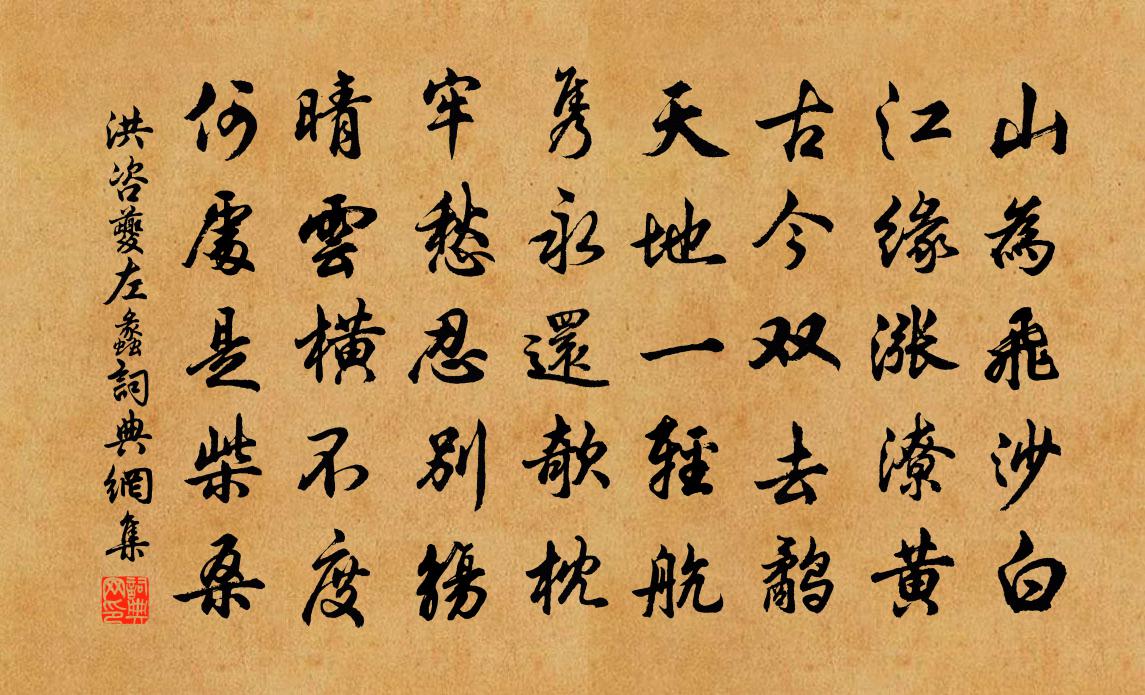 山為飛沙白
江緣漲潦黃
古今双去鷸
天地一輕航
雋永還欹枕
牢愁忍別觴
晴雲橫不度
何處是柴桑
洪咨夔左蠡詞典網集
詞典网印